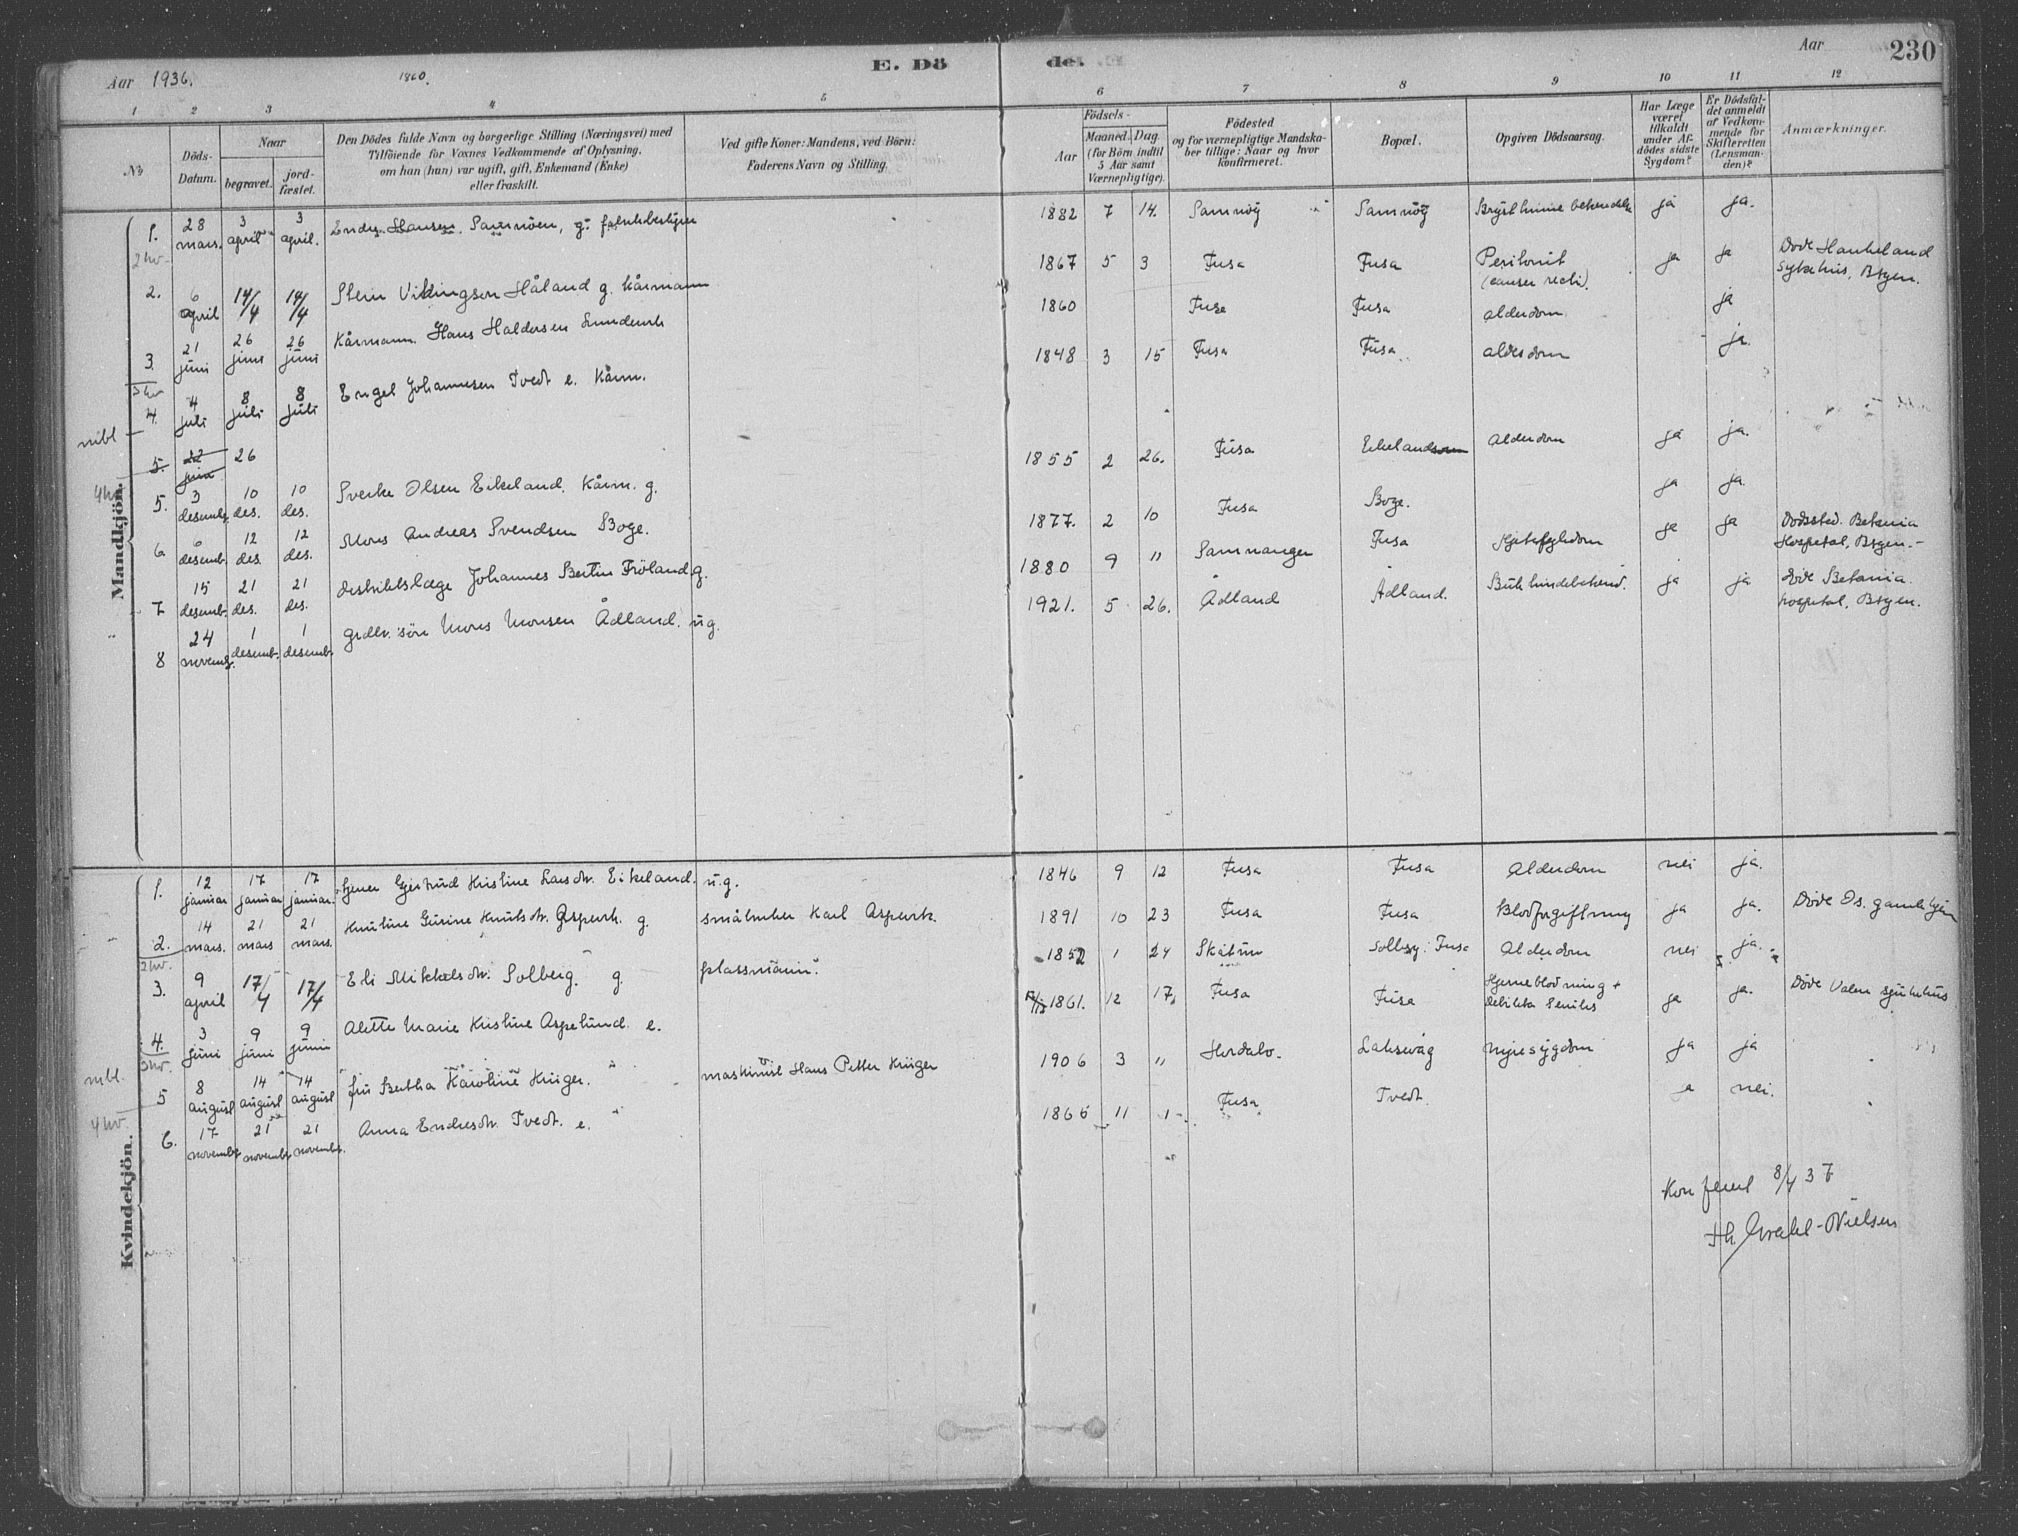 Aar 1936. 1860. E. Dö de. Aar 230
1 2 3 4 5 6 7 8 9 10 11 12
No
Döds-Datum.
Naar
begravet.
jord-fæstet.
Den Dödes fulde Navn og borgerlige Stilling (Næringsvei) med
Tilföiende for Voxnes Vedkommende af Oplysning,
om han (hun) var ugift, gift, Enkemand (Enke)
eller fraskilt.
Ved gifte Koner: Mandens, ved Börn:
Faderens Navn og Stilling.
Födsels-
Aar
Maaned. Dag.
(for Börn indtil
5 Aar samt
Værnepligtige).
Födested
og for værnepligtige Mandska-
ber tillige: Naar og hvor
konfirmeret.
Bopæl.
Opgiven Dödsaarsag.
Har Læge
været
tilkaldt
under Af-
dödes sidste
Sygdom?
Er Dödsfal-
det anmeldt
af Vedkom-
mende for
Skifteretten
(Lensman-
den)?
Anmærkninger.
Mandkjön.
1. 28 mars. 3 april 3 april. Endre Hansen Samnöen, g. fabrikbestyrer 1882 7 14. Samnöy Samnöy ja ja.
2 hv.
2. 6 april 14/4 14/4 Stein Vikingson Håland g. kårmann 1867 5 3 Fusa Fusa Peritonit (cancer recti). ja ja Döde Haukeland Sykehus, Bergen.
3. 21 juni 26 juni 26 juni Kårmann Hans Haldorsen 1860 Fusa Fusa alderdom. ja
3 hv
4. 4 juli 8 juli 8 juli Engel Johannesen Tvedt e. Kårm. 1848 3 15 Fusa Fusa alderdom ja.
nibl
5. 22 juni 26
4 hv.
5. 3 desemb. 10 des. 10 des. Sverke Olsen Eikeland. Kårm. g. 1855 2 26. Fusa Eikeland Alderdom ja ja.
6 6 desemb. 12 des. 12 des. Mons Andreas Svendsen Boge. 1877. 2 10 Fusa Boge. ja ja.
7 15 desemb. 21 des. 21 des. distriktslæge Johannes Bertin Fröland g. 1880 9 " Samnanger Fusa ja ja Dödssted. Betania Hospital, Bergen.-
8 24 novemb. 1 desemb. 1 desemb. grdbr. sön Mons Monsen Ådland. ug. 1921. 5 26. Ådland Ådland. ja ja Döde Betania hospital, Bergen.
Kvindekjön.
1. 12 januar 17 januar 17 januar. Gjertrud Kristine Larsdtr. Eikeland. u.g. 1846 9 12 Fusa Fusa Alderdom nei ja.
2. 14 mars. 21 mars 21 mars. Knutine Gurine Knutsdtr. Aspevik. g. Karl Aspevik. 1891 10 23 Fusa Fusa Blodforgiftning ja ja. Döde Os. gamlehjem
2 hv.
3. 9 april 17/4 17/4 Eli Mikkelsdtr. Solberg. g. plassmann. 1852 1 24 Skåtun Solberg. Fusa Alderdom nei ja.
4. 3 juni 9 juni 9 juni Alette Marie Kristine Aspelund. e. 17/12 1861. 12 17. Fusa Fusa Hjerneblödning + Debilitas Senilis ja ja. Döde Valen sjukehus
3 hv.
nibl.
5 8 august 14 august 14 august fru Bertha Karoline Krüger. maskinist Hans Petter Krüger 1906 3 " Hordabö. Laksevåg nyresygdom ja ja
4 hv.
6. 17 novemb. 21 novemb. 21 novemb. Anna Endresdtr. Tvedt. e. 1866 11 1 Fusa Tvedt. nei.
Konferert 8/4 37
Th. -Nielsen